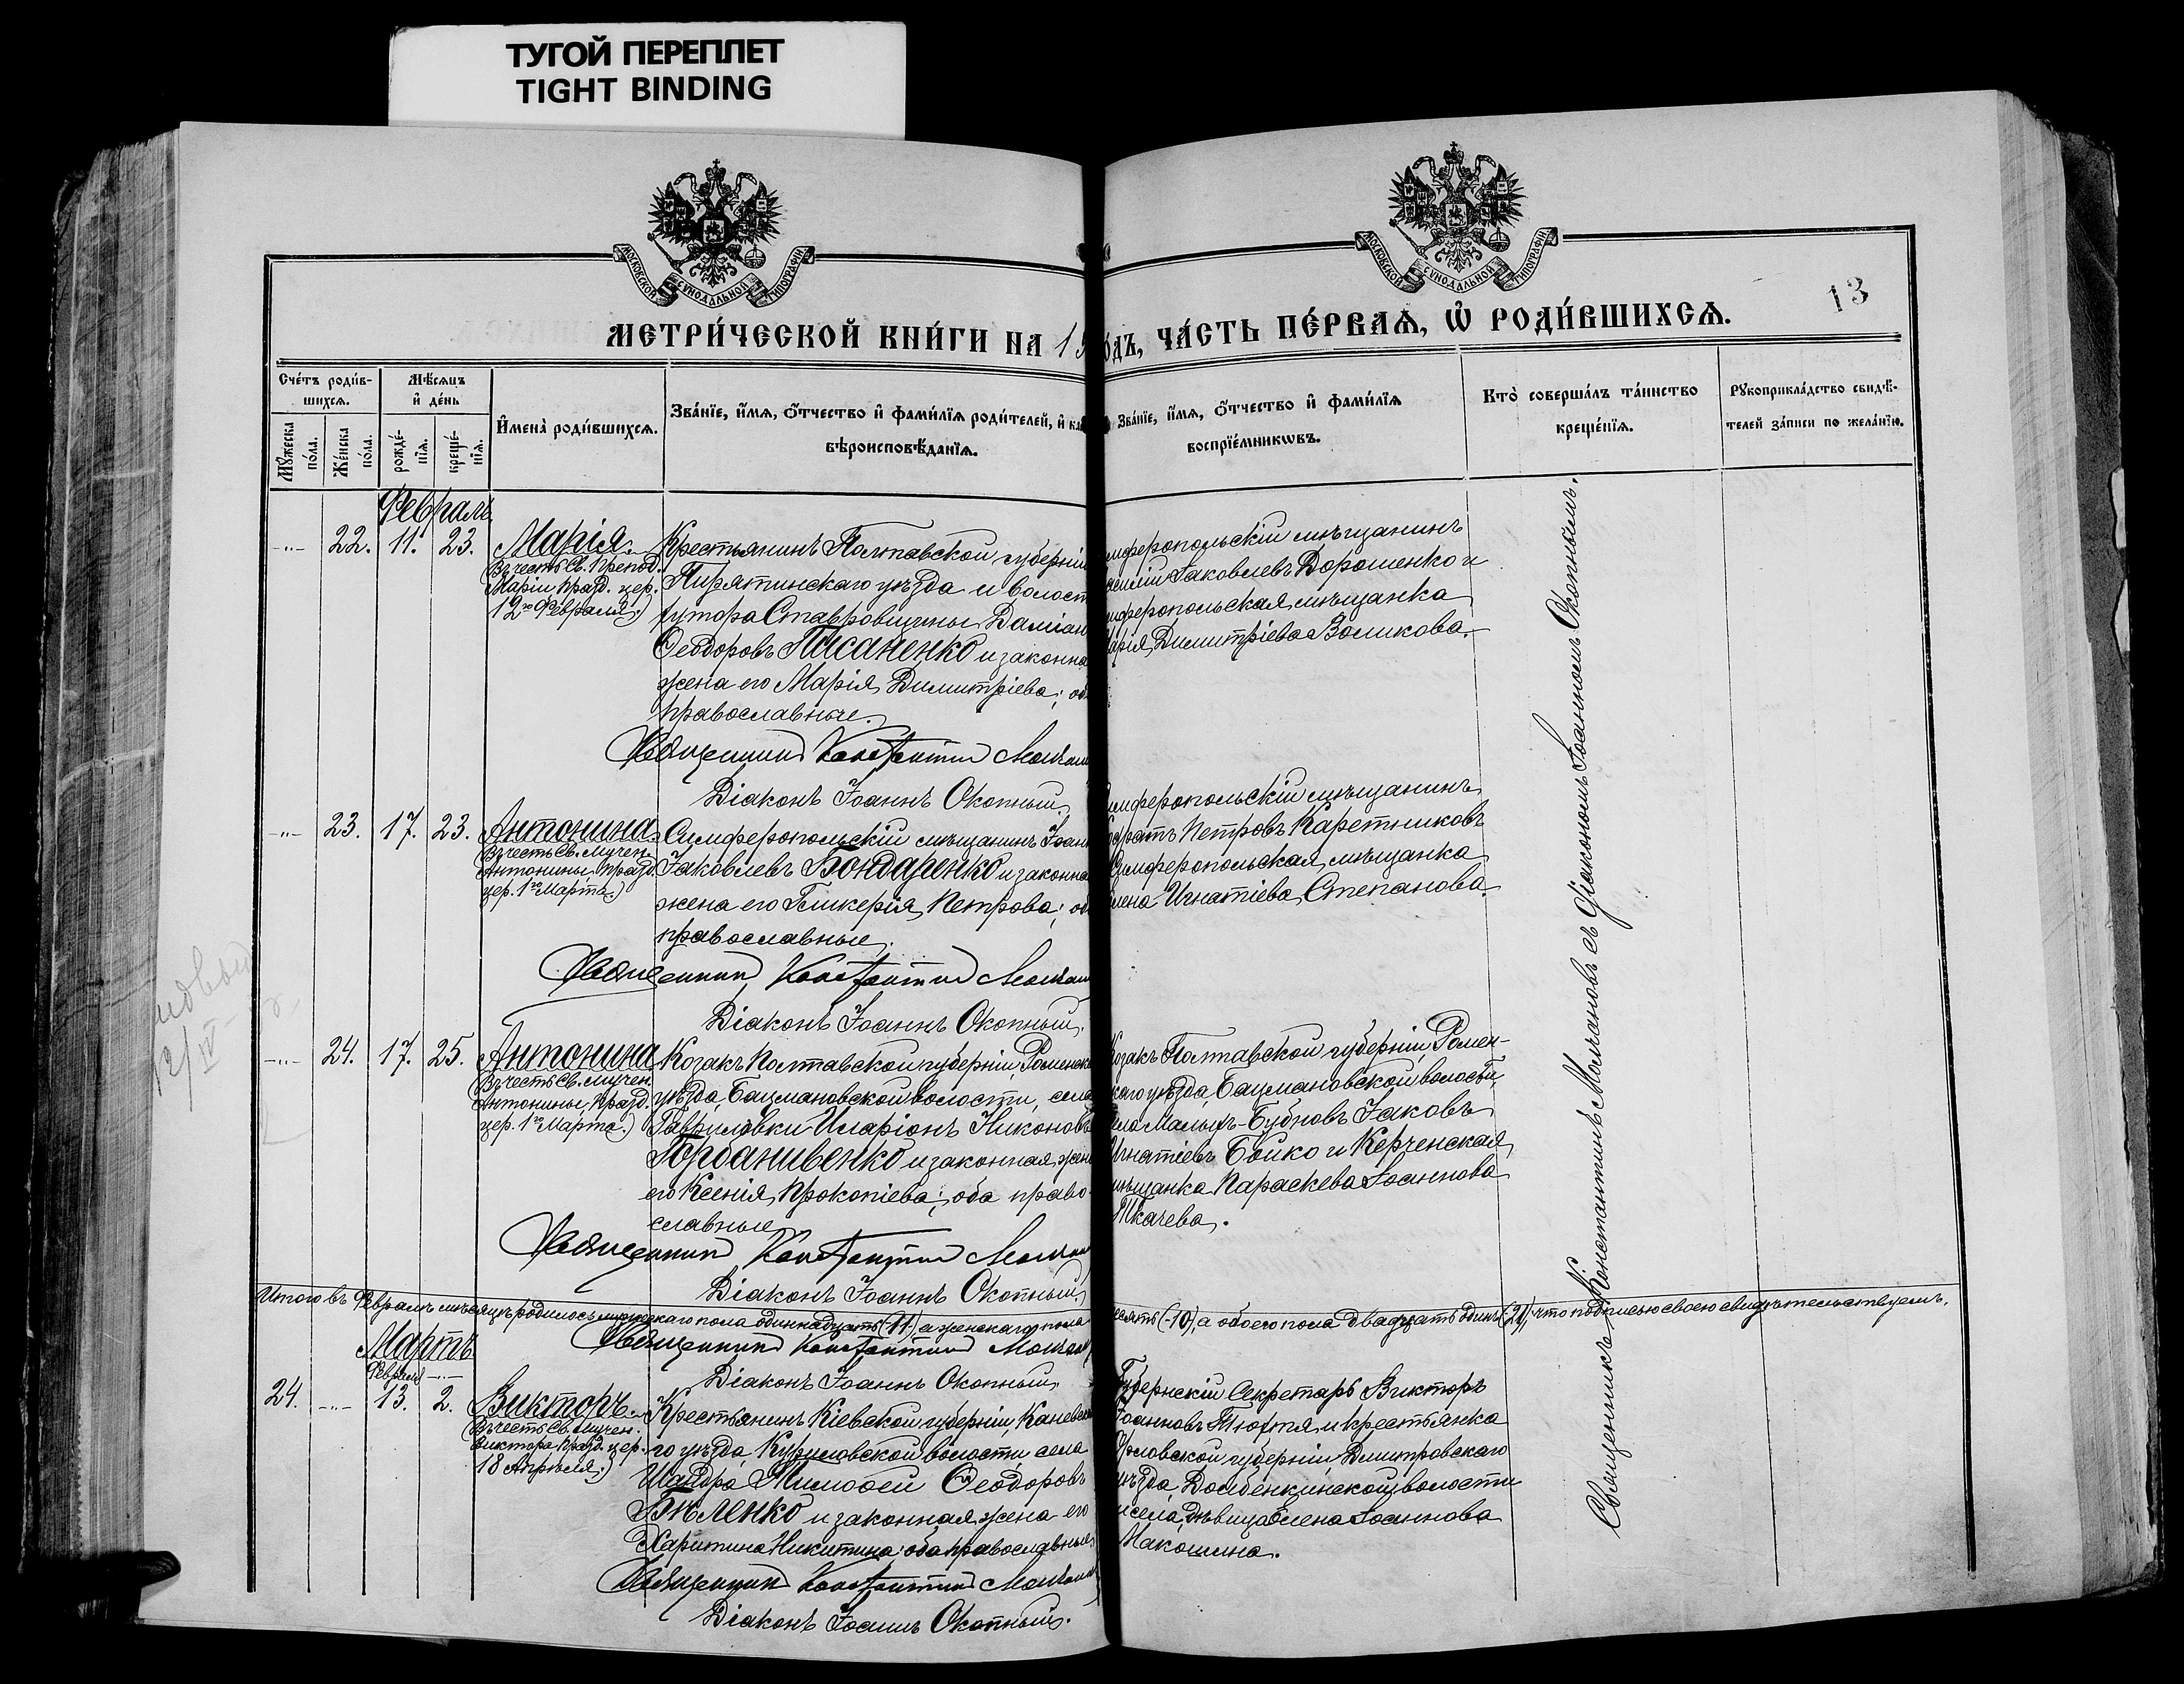 ТУГОЙ ПЕРЕПЛЕТ
TIGHT BINDING
МОСКОВСКОЙ СѴНОДАЛЬНОЙ ТИПОГРАФІИ
МОСКОВСКОЙ СѴНОДАЛЬНОЙ ТИПОГРАФІИ
13
МЕТРИ́ЧЕСКОЙ КНИ́ГИ НА 1
ЧА́СТЬ ПЕ́РВАѦ, Ѡ҆ РОДИ́ВШИХСѦ.
Сче́тъ роди́в-
шихсѧ.
Мѹжеска по́ла.
Же́нска по́ла.
Мѣ́сѧцъ
и҆ де́нь
рожде́-
нїѧ.
креще́-
нїѧ.
И҆мена̀ роди́вшихсѧ.
Зва́нїе, и҆́мѧ, ѻ҆́тчество и҆ фами́лїѧ роди́телей, и҆
вѣроисповѣ́данїѧ.
Зва́нїе, и҆́мѧ, ѻ҆́тчество и҆ фами́лїѧ
воспрїе́мникѡвъ.
Кто̀ соверша́лъ та́инство
креще́нїѧ.
Рꙋкоприкла́дство свидѣ́-
телей за́писи по жела́нїю.
Февраль
22. 11. 23.
Марія
(Въ честь Св. Препод.
Маріи празд. цер.
12го Февраля.)
Крестьянинъ Полтавской губерніи
Пирятинскаго уѣзда и волост
хутора Ставровщины Даміан
Ѳеодоровъ Писаненко и законна
жена его Марія Димитріева; об
православные.
Священникъ Константинъ Молчан
Діаконъ Іоаннъ Окопный.
мферопольскій мѣщанинъ
силій Іаковлевъ Дорошенко и
мферопольская мѣщанка
арія Димитріева Воликова.
23. 17. 23.
Антонина
(Въ честь Св. Мучен.
Антонины, празд.
цер. 1го Марта.)
Симферопольскій мѣщанинъ Іоан
Іаковлевъ Бондаренко и законна
жена его Гликерія Петрова; об
православные.
Священникъ Константинъ Молчан
Діаконъ Іоаннъ Окопный.
имферопольскій мѣщанинъ
Петровъ Каретниковъ
Симферопольская мѣщанка
лена Игнатіева Степанова.
24. 17. 25.
Антонина
(Въ честь Св. Мучен.
Антонины, празд.
цер. 1го Марта.)
Козакъ Полтавской губерніи, Роменска
уѣзда, Бацмановской волости, села
Гавриловки Иларіонъ Никоновъ
Горбанивенко и законная жен
его Ксенія Прокопіева; оба право-
славные
Священникъ Константинъ Молчан
Діаконъ Іоаннъ Окопный
Козакъ Полтавской губерніи, Ромен-
каго уѣзда, Бацмановской волости,
ела Малыхъ-Бубновъ Іаковъ
Игнатіевъ Бойко и Керченская
мѣщанка Параскева Іоаннова
Ткачева.
Итого въ Февралѣ мѣсяцѣ родилось мужескаго пола одиннадцать (11), а женскаго пола
есять (10), а обоего пола двадцать одинъ (21), что подписью своею свидѣтельствуемъ.
Священникъ Константинъ Молчан
Діаконъ Іоаннъ Окопный
Мартъ
Февраля
24. 13. 2.
Викторъ
(Въ честь Св. Мучен.
Виктора празд. цер.
18 Апрѣля.)
Крестьянинъ Кіевской губерніи, Каневска
го уѣзда, волости, села
Шандра Ѳеодоровъ
Бѣленко и законная жена его
Харитина Никитина; оба православные
Священникъ Константинъ Молчан
Діаконъ Іоаннъ Окопный.
Губернскій Секретарь Викторъ
Іоанновъ Тютя и крестьянка
Орловской губерніи, Дмитровскаго
уѣзда, волости
села, дѣвица Елена Іоаннова
Макошина.
Священникъ Константинъ Молчановъ съ Діакономъ Іоанномъ Окопнымъ.